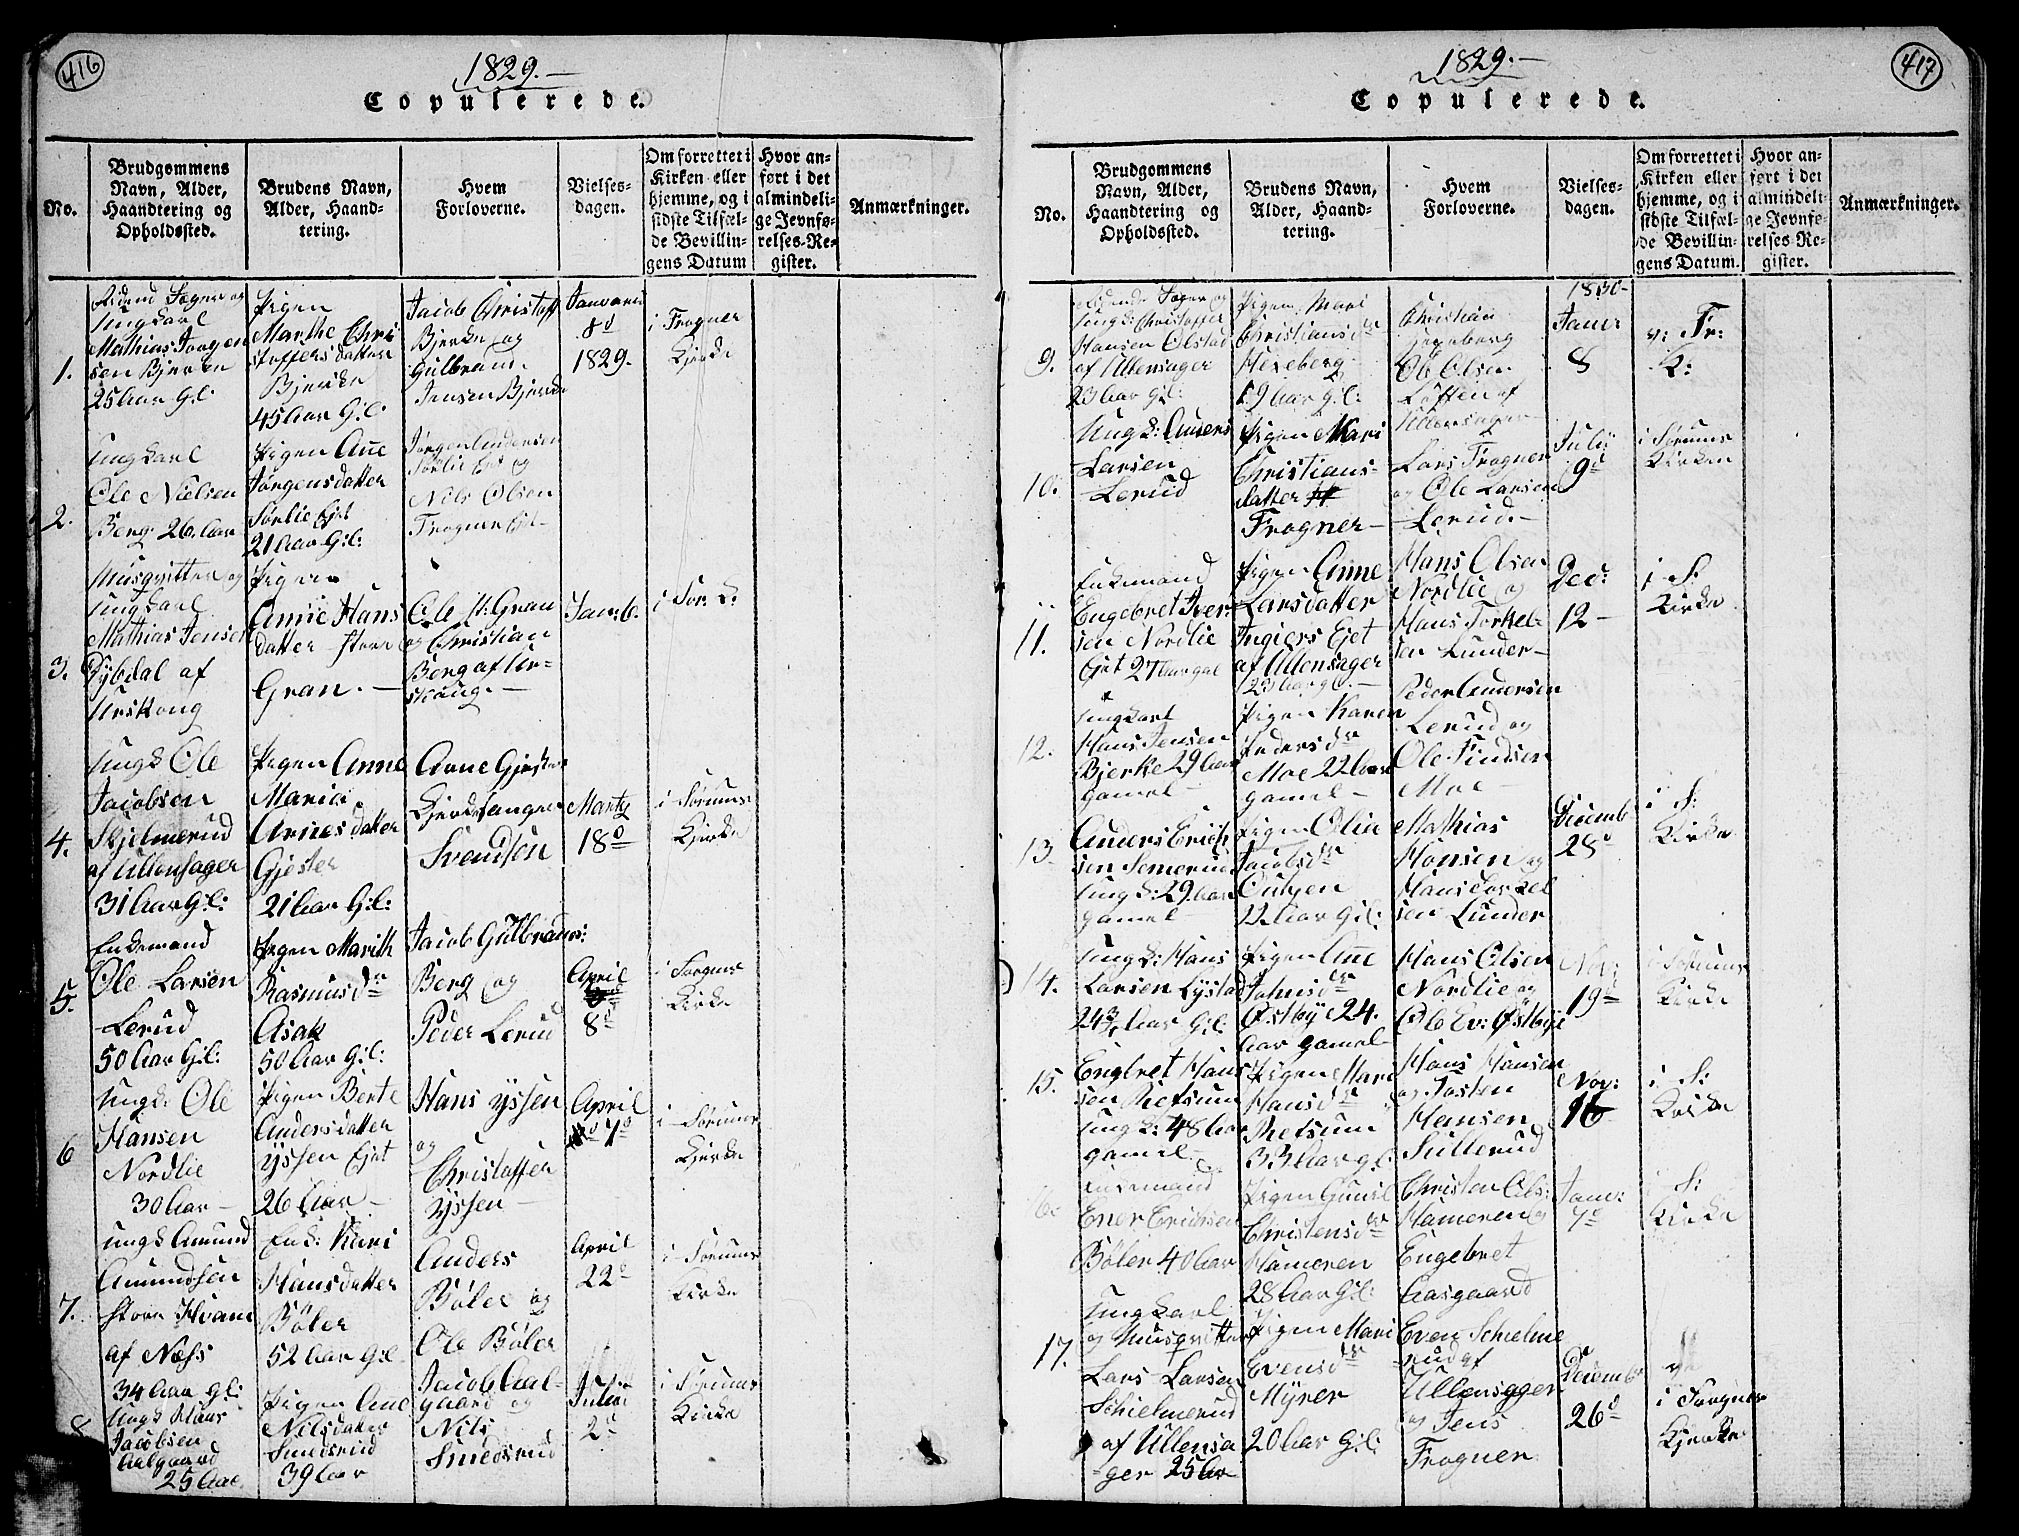 416
1829.—
Copulerede.
No.
Brudgommens
Navn, Alder,
Haandtering og
Opholdssted.
Brudens Navn,
Alder, Haand-
tering.
Hvem
Forloverne.
Vielses-
dagen.
Om forrettet i
Kirken eller
hjemme, og i
sidste Tilfæl-
de Bevillin-
gens Datum
Hvor an-
ført i det
almindeli-
ge Jevnfø-
relses-Re-
gister.
Anmærkninger.
1.
Ungkarl
Mathias Jørgen
sen Bjerke
25 Aar Gl:
Pigen
Marthe Chri
stoffersdatter
Bjerke
45 Aar Gl:
Jacob Christoff
Bjerke og
Gulbrand
Jensen Bjerke
Januari
8d
1829.
i Frogner
Kjerke
2.
Ungkarl
Ole Nielsen
Berg 26 Aar
Pigen Anne
Jørgensdatter
Sørlie Ejet
21 Aar Gl:
Jørgen Andersen
Sørlie Ejet og
Nils Olsen
Frogner Ejet
3.
Musqvitter og
Ungkarl
Mathias Jensen
Dybdal af
Urskoug
Pigen
Anne Hans
datter store
Gran.—
Ole H: Gran
og Christian
Berg af Ur-
skoug.—
Jan: 6.
i Sør: K:
4.
Ungk Ole
Jacobsen
Skjelmerud
af Ullensager
31 Aar Gl:
Pigen Anne
Maria
Arnesdatter
Gjester
21 Aar Gl:
Arne Gjester
Kjerkesanger
Svendsen
Marty
18d
i Sørums
Kjerke
5.
Enkemand
Ole Larsen
Lerud
50 Aar Gl:
Pigen Marith
Rasmusdr
Asak
50 Aar Gl:
Jacob Gulbrands:
Berg og
Peder Lerud
April
8d
i Sørums
Kirke
6
Ungk: Ole
Hansen
Nordlie
30 Aar—
Pigen Berte
Andersdatter
Yssen Ejet
26 Aar—
Hans Yssen
og
Christoffer
Yssen—
April
7d
i Sørums
Kjerke
7.
Ungk Amund
Amundsen
store Hvam
af Næss
34 Aar gl:
Enk: Kari
Hansdatter
Bøler
52 Aar Gl.
Anders
Bøler og
Ole Bøler
April
22d
i Sørums
Kirke
8
Ungk Hans
Jacobsen
Aalgaard
25 Aar
Pigen Anne
Nilsdatter
Smedsrud
39 Aar
Jacob Aal-
gaard og
Nils
Smedsrud
Julii
2d
i Sørums
Kirke
417
1829.—
Copulerede.
No.
Brudgommens
Navn, Alder,
Haandtering og
Opholdssted.
Brudens Navn,
Alder, Haand-
tering.
Hvem
Forloverne.
Vielses-
dagen.
Om forrettet i
Kirken eller
hjemme, og i
sidste Tilfæl-
de Bevillin-
gens Datum.
Hvor an-
ført i det
almindeli-
ge Jevnfø-
relses Re-
gister.
Anmærkninger.
9.
Ungk: Christoffer
Hansen Olstad
af Ullensager
23 Aar Gl:
Pigen Mari
Christiansdr
Hexeberg
19 Aar gl:
Christian
Ole Olsen
Løkken af
Ullensager
1830
Januar
8
v: Fr:
K:
10.
Ungk: Anders
Larsen
Lerud
Pigen Mari
Christians-
datter
Frogner—
Lars Frogner
og Ole Larsen
Lerud.—
Julii
9d
i Sørums
Kirken
11.
Enkemand
Engebret Iver
sen Nordlie
Ejet 27 Aar gal
Pigen Anne
Larsdatter
Ingiers Ejet
af Ullensager
23 Aar gl.—
Hans Olsen
Nordlie og
Hans Torkel-
sen Lunder—
Dec:
12—
i S:
Kirke
12.
Ungkarl
Hans Jensen
Bjerke 29 Aar
gamel—
Pigen Karen
Pedersdr
Moe 22 Aar
gamel—
Peder Andersen
Lerud og
Ole Findsen
Moe—
13.
Anders Erich
sen Semerud
Ungk: 29 Aar
gamel—
Pigen Olia
Jacobsdr
22 Aar Gl:
Mathias
Hansen og
Hans Torkel
sen Lunder
Decemb
28d
i S:
Kirke
14.
Ungk: Hans
Larsen Lystad
24 3/4 Aar Gl:
Pigen Anne
Johnsdr
Østbye 24.
Aar gamel—
Hans Olsen
Nordlie og
Ole Ev: Østbye
Nov:
19d
i Sørums
Kirke
15.
Engbret Hans
sen Refsum
Ungk: 48 Aar
gamel—
Pigen Mari
Hansdr
Refsum
33 Aar gl:
Hans Hansen
og Josten
Hansen
Sullerud
Nov:
16
i S:
Kirke
16.
Enkemand
Ener Erichsen
Bøler 40 Aar
Pigen Gunil
Christensdr
Hameren
28 Aar Gl:
Christen Ols:
Hameren og
Engebret
Aasgaard
Janv:
7d
i S:
Kirke
17.
Ungkarl
og Musqvitter
Lars Larsen
Schielmerud
af Ullensa
-ger 25 Aar
Pigen Mari
Evensdr
Myrer
20 Aar Gl:
Even Schielme
rud af
Ullensager
og Jens
Frogner
Decemb
26d
i Frogner
Kjerke